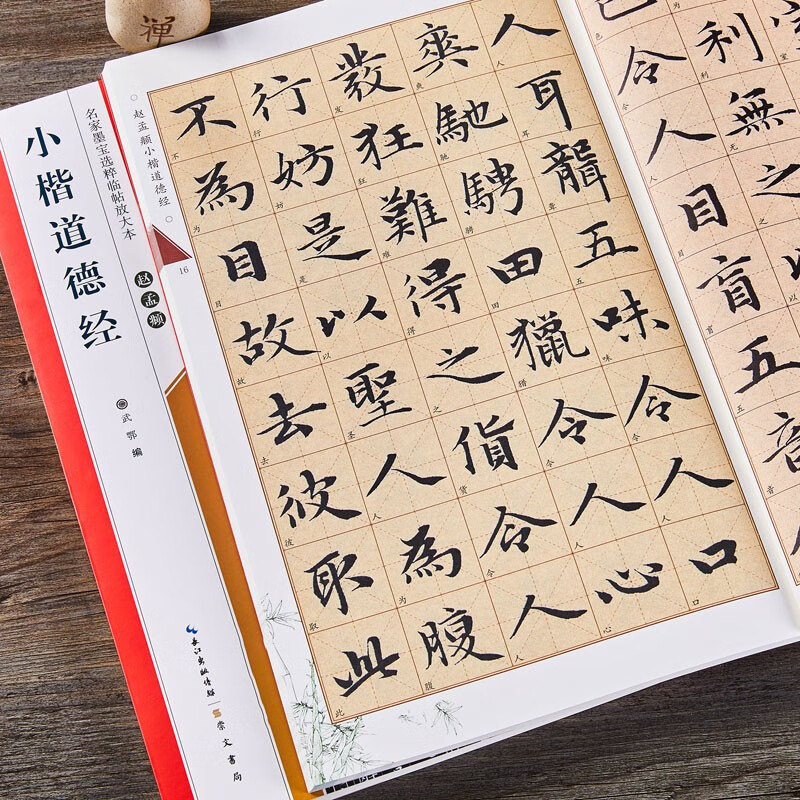 禪
利無之以
色令人目盲五音
人耳聾五味令人口
爽馳騁田獵令人心
發狂難得之貨令人
行妨是以聖人為腹
不為目故去彼取此
○ 赵孟頫小楷道德经 ○
16
名家墨宝选粹临帖放大本
赵孟頫
小楷道德经
武鄂 编
长江出版传媒
崇文書局